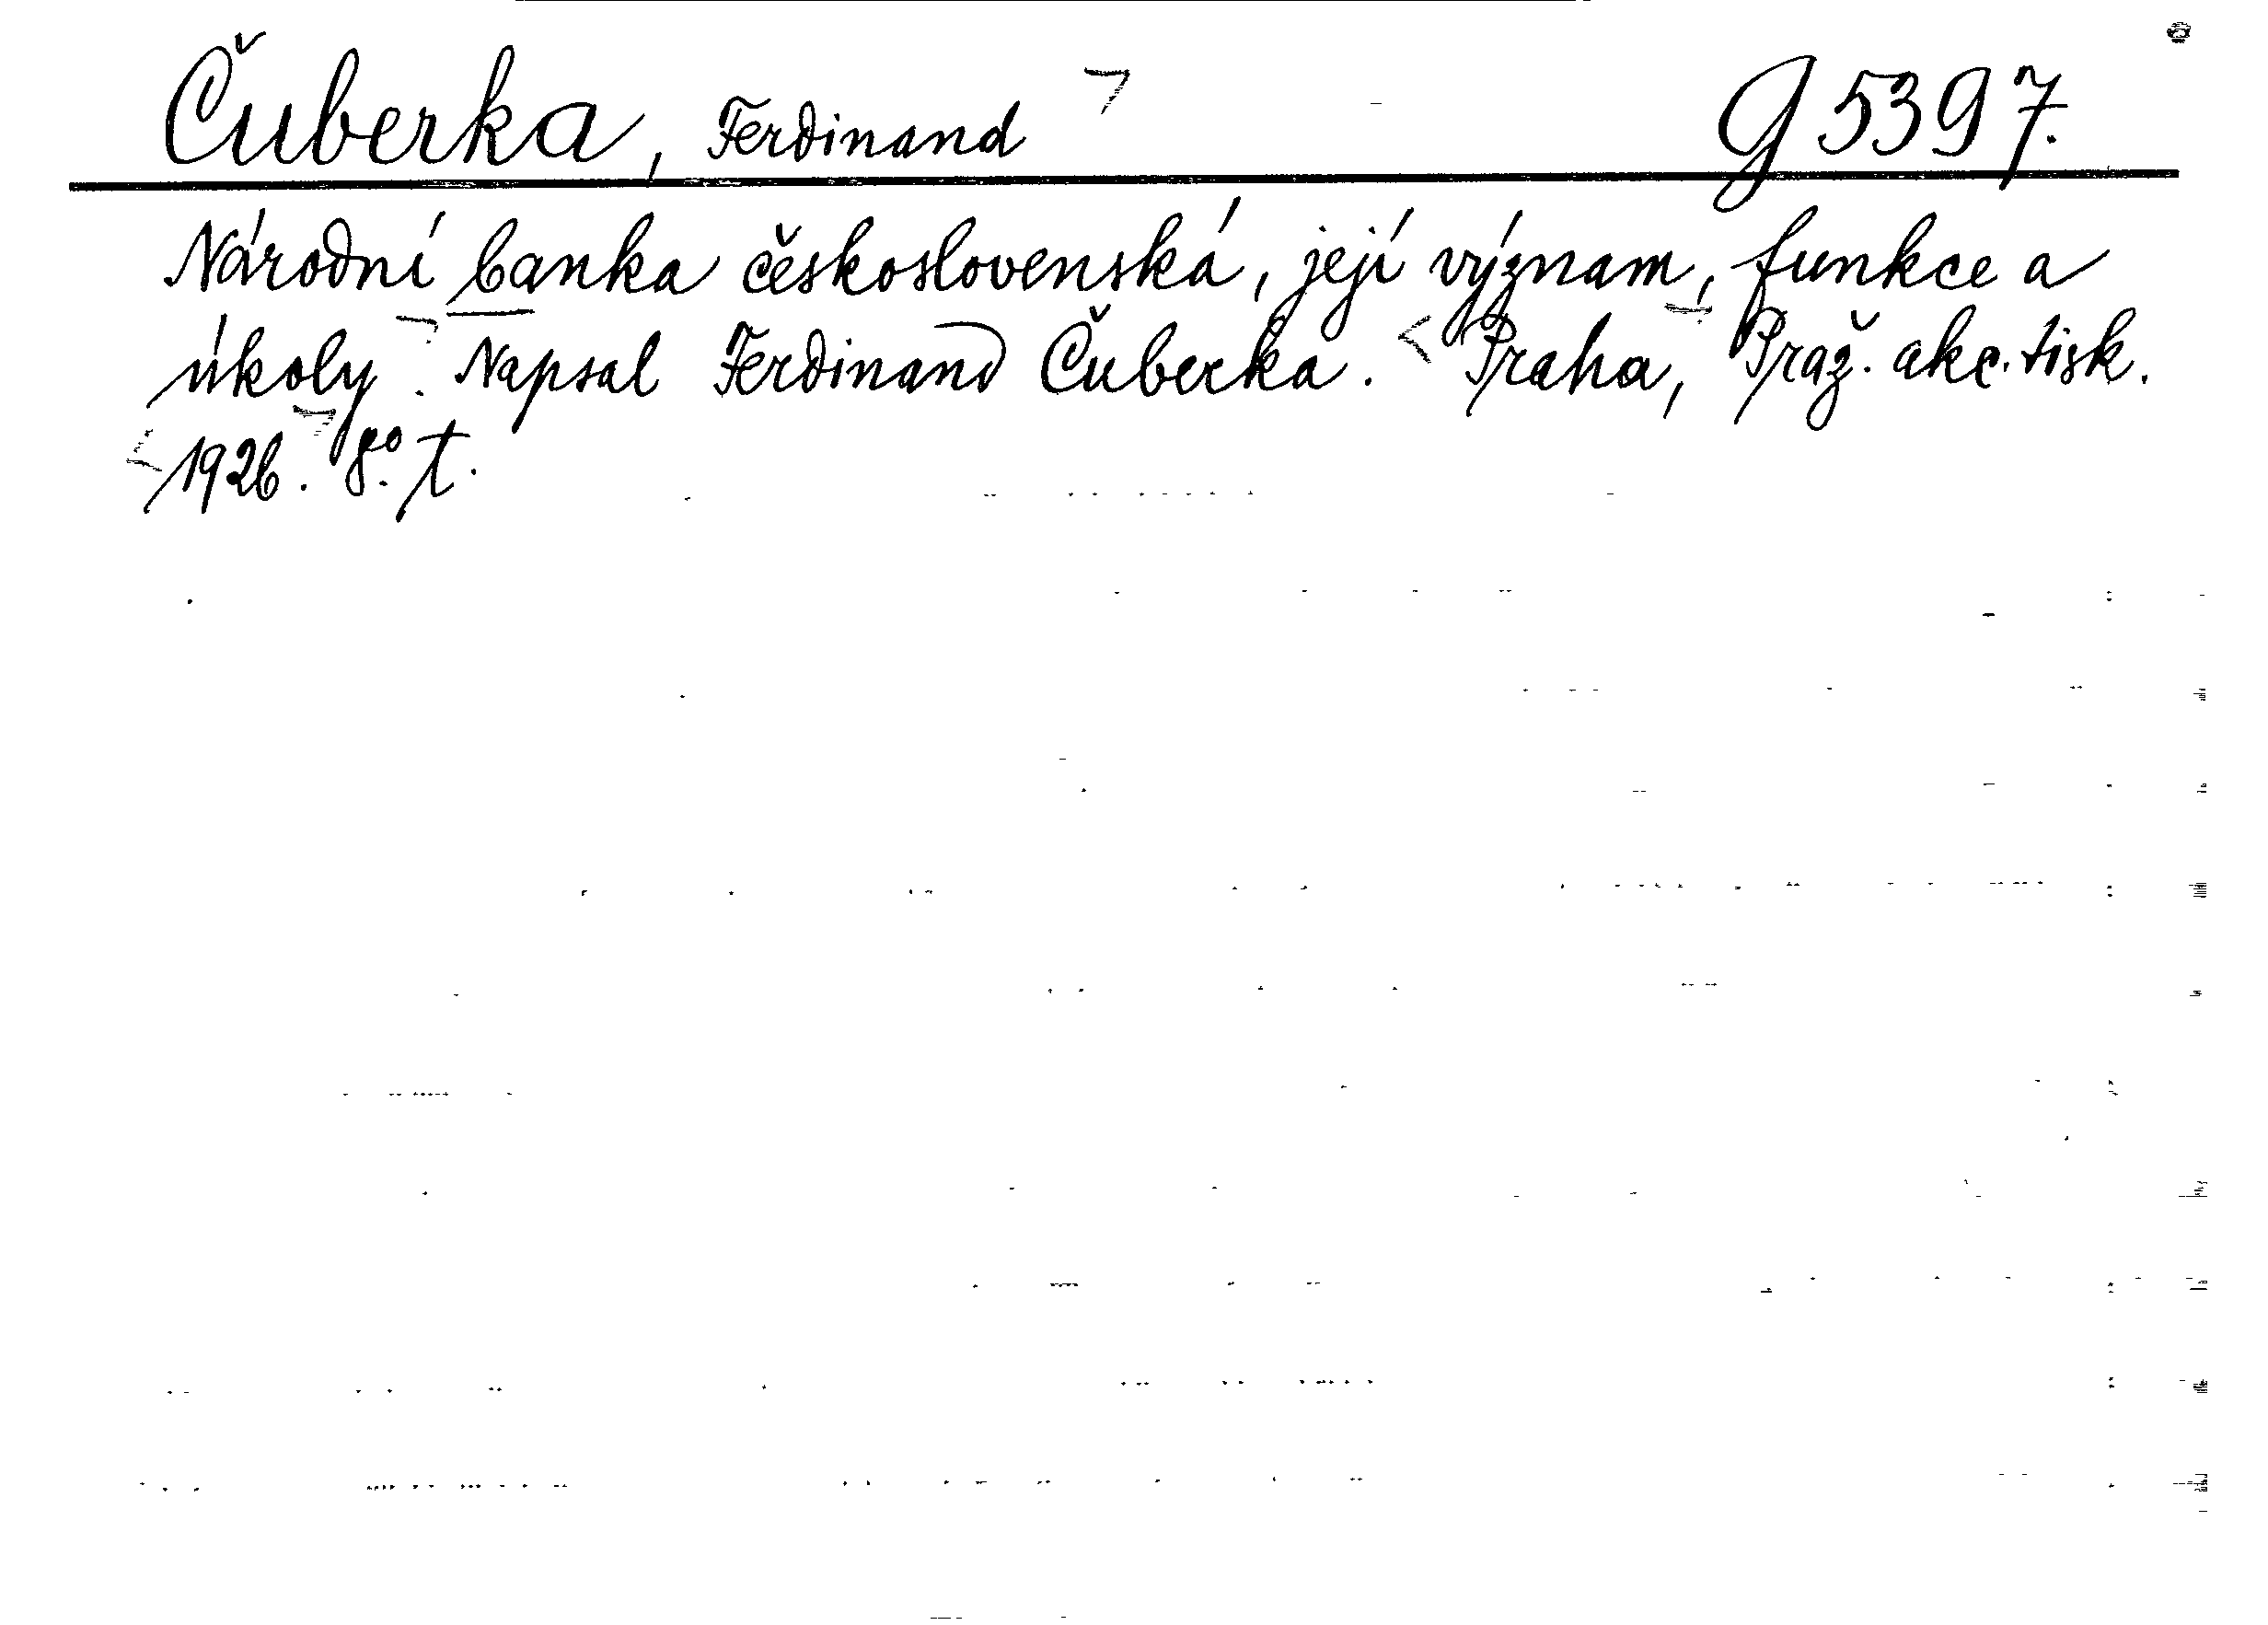 Čuberka, Ferdinand G 5397.
Národní banka československá, její význam, funkce a
úkoly. Napsal Ferdinand Čuberka. Praha, Praž. akc. tisk.
1926. 8º. t.